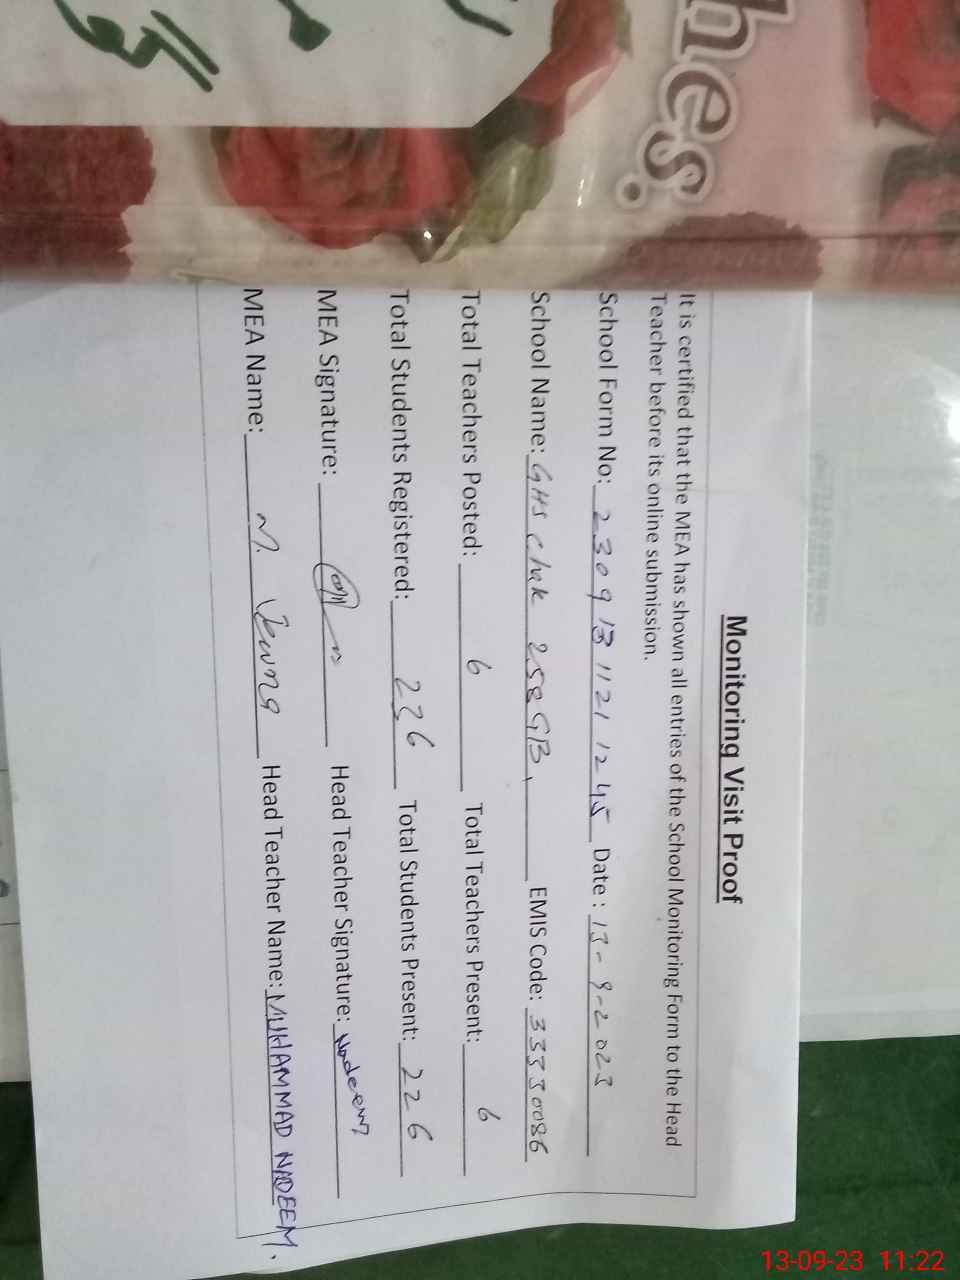 hes.
Monitoring Visit Proof
It is certified that the MEA has shown all entries of the School Monitoring Form to the Head
Teacher before its online submission.
School Form No: 23091311211245 Date : 13-9-2023
School Name: GHS Chak 258 GB, EMIS Code: 33330086
Total Teachers Posted: 6 Total Teachers Present: 6
Total Students Registered: 236 Total Students Present: 226
MEA Signature: Head Teacher Signature: Nadeem
MEA Name: M. Head Teacher Name: MUHAMMAD NADEEM.
13-09-23 11:22